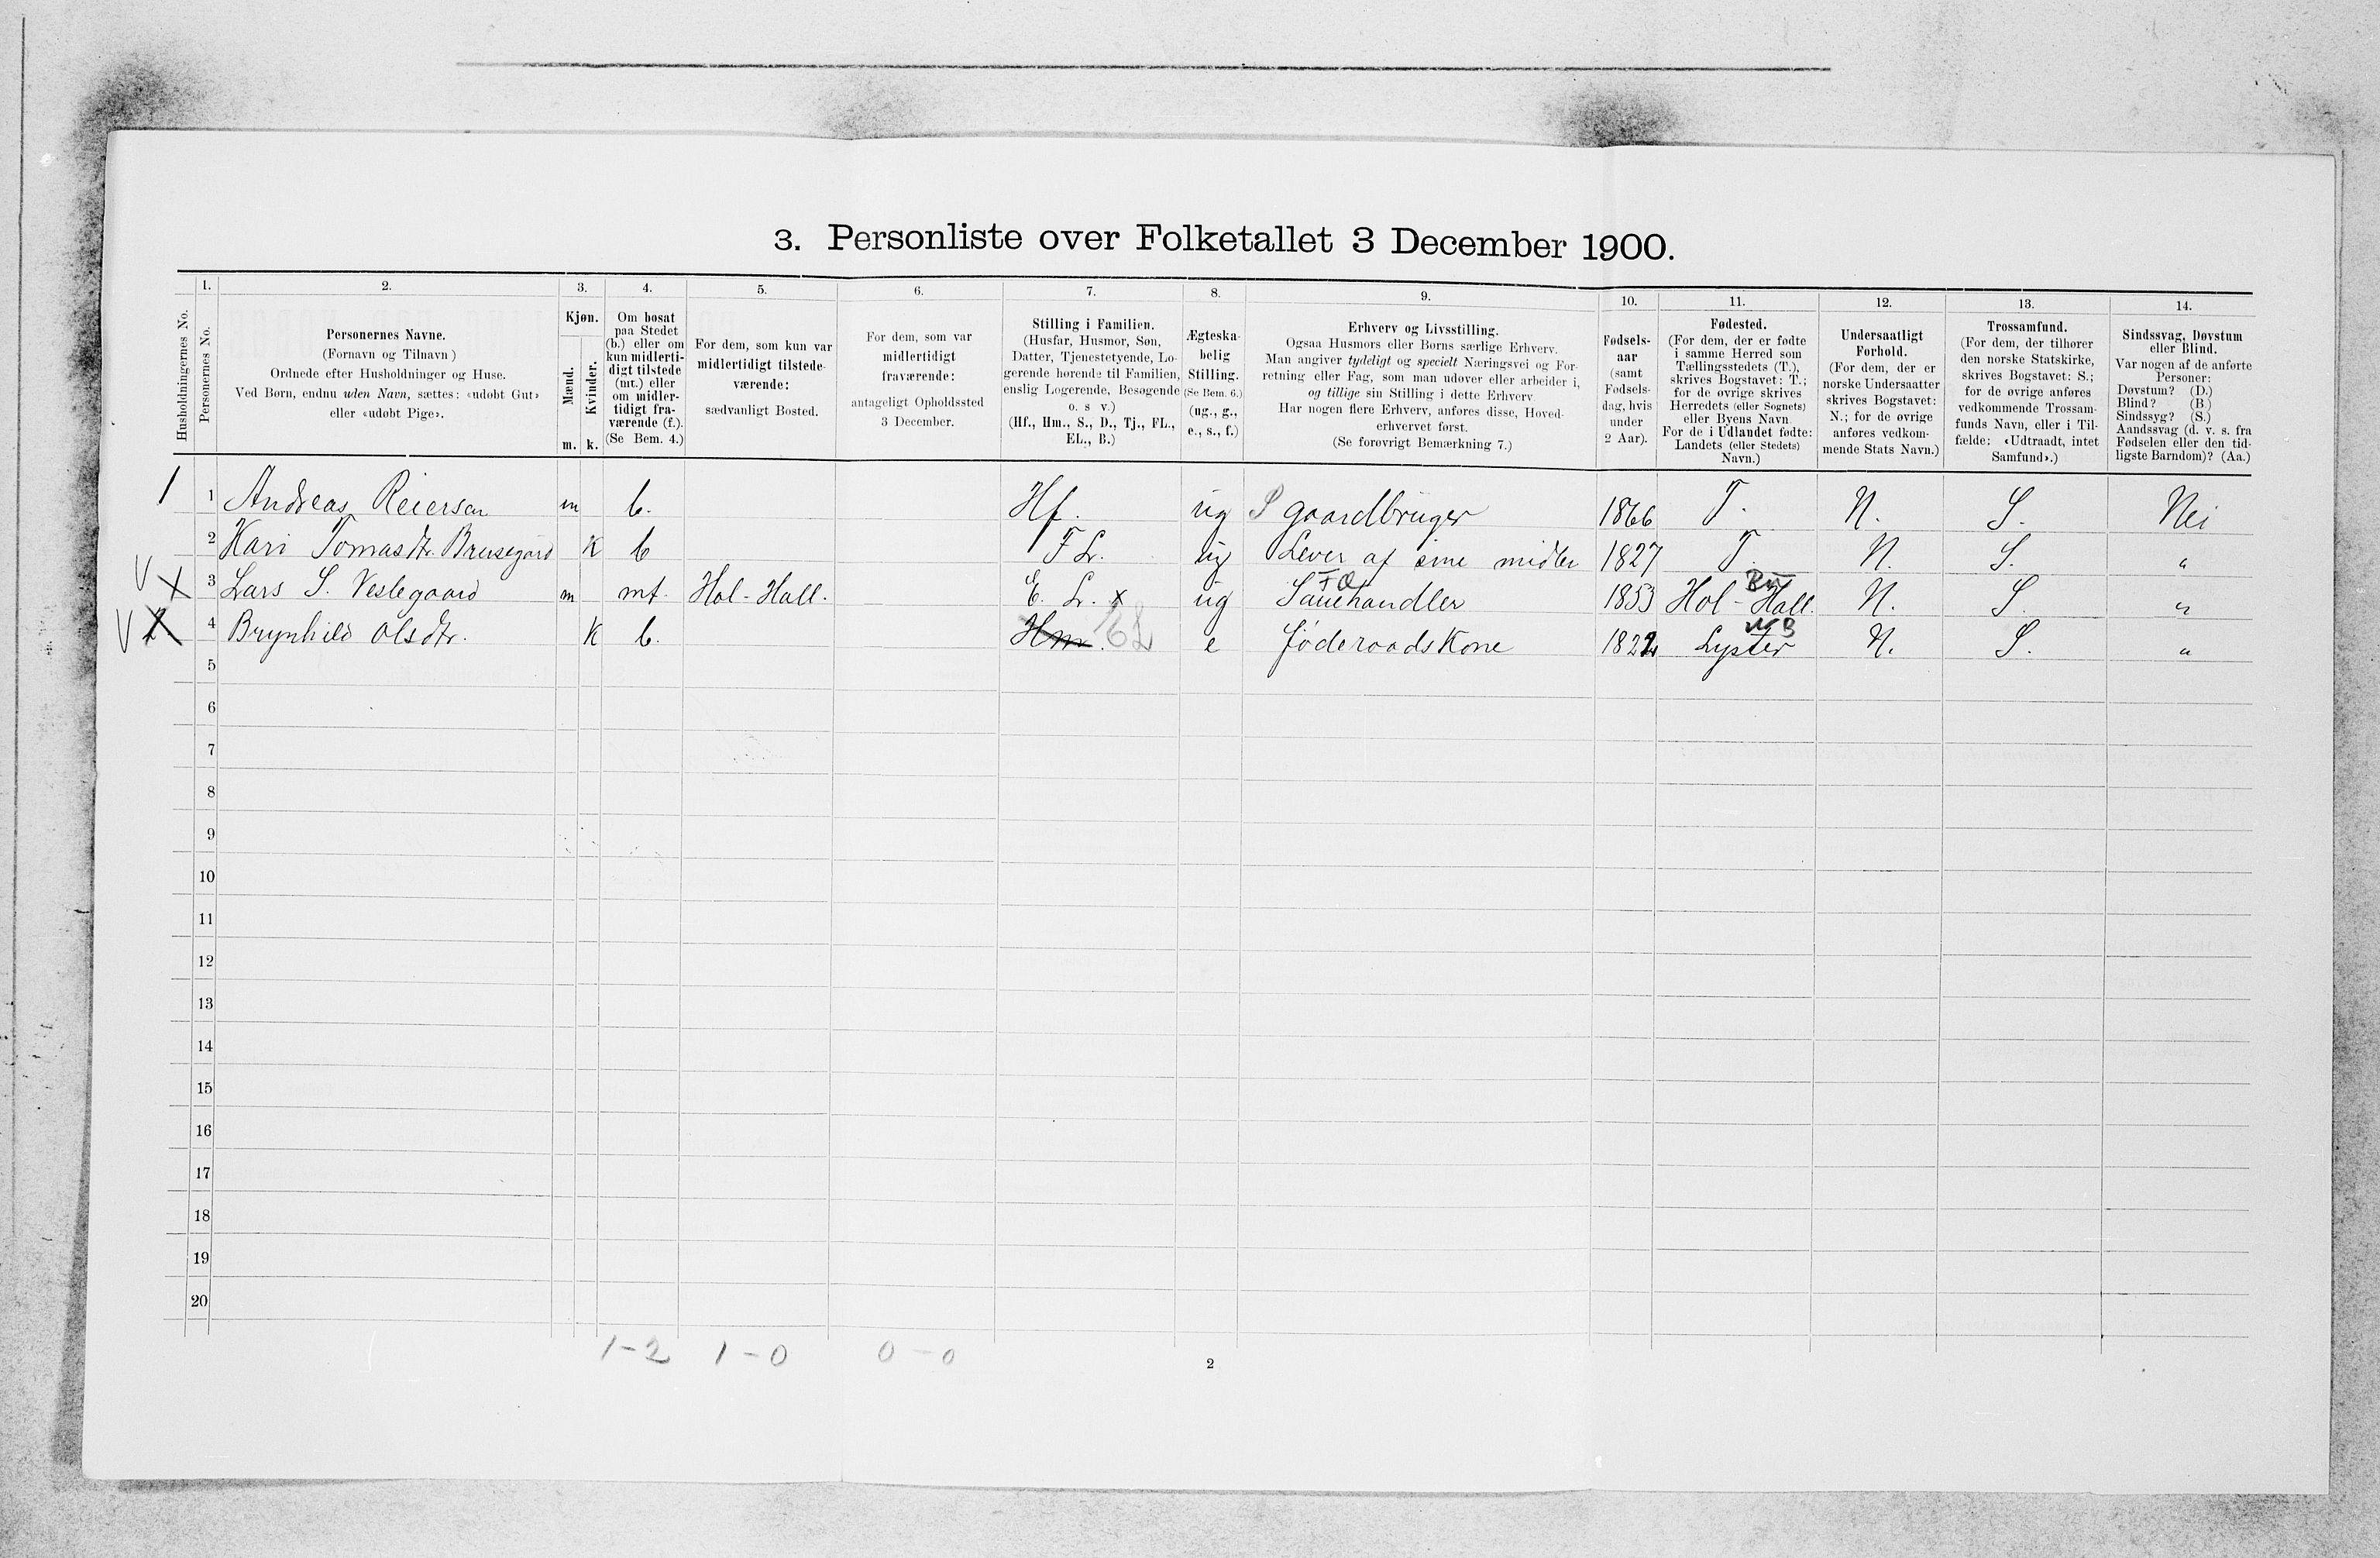 3. Personliste over Folketallet 3 December 1900.
1. 2. 3. 4. 5. 6. 7. 8. 9. 10. 11. 12. 13. 14.
Husholdningernes No.
Personernes No.
Personernes Navne.
(Fornavn og Tilnavn)
Ordnede efter Husholdninger og Huse.
Ved Børn, endnu uden Navn, sættes: «udøbt Gut»
eller «udøbt Pige».
Kjøn.
Mænd.
Kvinder.
m. k.
Om bosat
paa Stedet
(b.) eller om
kun midlerti-
digt tilstede
(mt.) eller
om midler-
tidigt fra-
værende (f.).
(Se Bem. 4.)
For dem, som kun var
midlertidigt tilstede-
værende:
sædvanligt Bosted.
For dem, som var
midlertidigt
fraværende:
antageligt Opholdssted
3 December.
Stilling i Familien.
(Husfar, Husmor, Søn,
Datter, Tjenestetyende, Lo-
gerende hørende til Familien,
enslig Logerende, Besøgende
o. s. v.)
(Hf., Hm., S., D., Tj., FL.,
EL., B.)
Ægteska-
belig
Stilling.
(Se Bem. 6.)
(ug., g.,
e., s., f.)
Erhverv og Livsstilling.
Ogsaa Husmors eller Børns særlige Erhverv.
Man angiver tydeligt og specielt Næringsvei og For-
retning eller Fag, som man udøver eller arbeider i,
og tillige sin Stilling i dette Erhverv.
Har nogen flere Erhverv, anføres disse, Hoved-
erhvervet først.
(Se forøvrigt Bemærkning 7.)
Fødsels-
aar
(samt
Fødsels-
dag, hvis
under
2 Aar).
Fødested.
(For dem, der er fødte
i samme Herred som
Tællingsstedets (T.),
skrives Bogstavet: T.;
for de øvrige skrives
Herredets (eller Sognets)
eller Byens Navn.
For de i Udlandet fødte:
Landets (eller Stedets)
Navn.)
Undersaatligt
Forhold.
(For dem, der er
norske Undersaatter
skrives Bogstavet:
N.; for de øvrige
anføres vedkom-
mende Stats Navn.)
Trossamfund.
(For dem, der tilhører
den norske Statskirke,
skrives Bogstavet: S.;
for de øvrige anføres
vedkommende Trossam-
funds Navn, eller i Til-
fælde: «Udtraadt, intet
Samfund».)
Sindssvag, Døvstum
eller Blind.
Var nogen af de anførte
Personer:
Døvstum? (D.)
Blind? (B.)
Sindssyg? (S.)
Aandssvag (d. v. s. fra
Fødselen eller den tid-
ligste Barndom)? (Aa.)
1 1 Andreas Reiersen m b. Hf. ug S gaardbruger 1866 T. N. S. Nei
2 Kari Tomasdtr. Brusegård K b FL. ug Lever af sine midler 1827 T. N. S. "
3 Lars S. Veslegaard m mt. Hol-Hall. E. L. x ug Sauehandler 1853 Hol-Hall. N. S. "
4 Brynhild Olsdtr. K b. Hm. EL e føderaadskone 1822 Lyster N. S. "
5
6
7
8
9
10
11
12
13
14
15
16
17
18
19
20
1-2 1-0 0-0
2